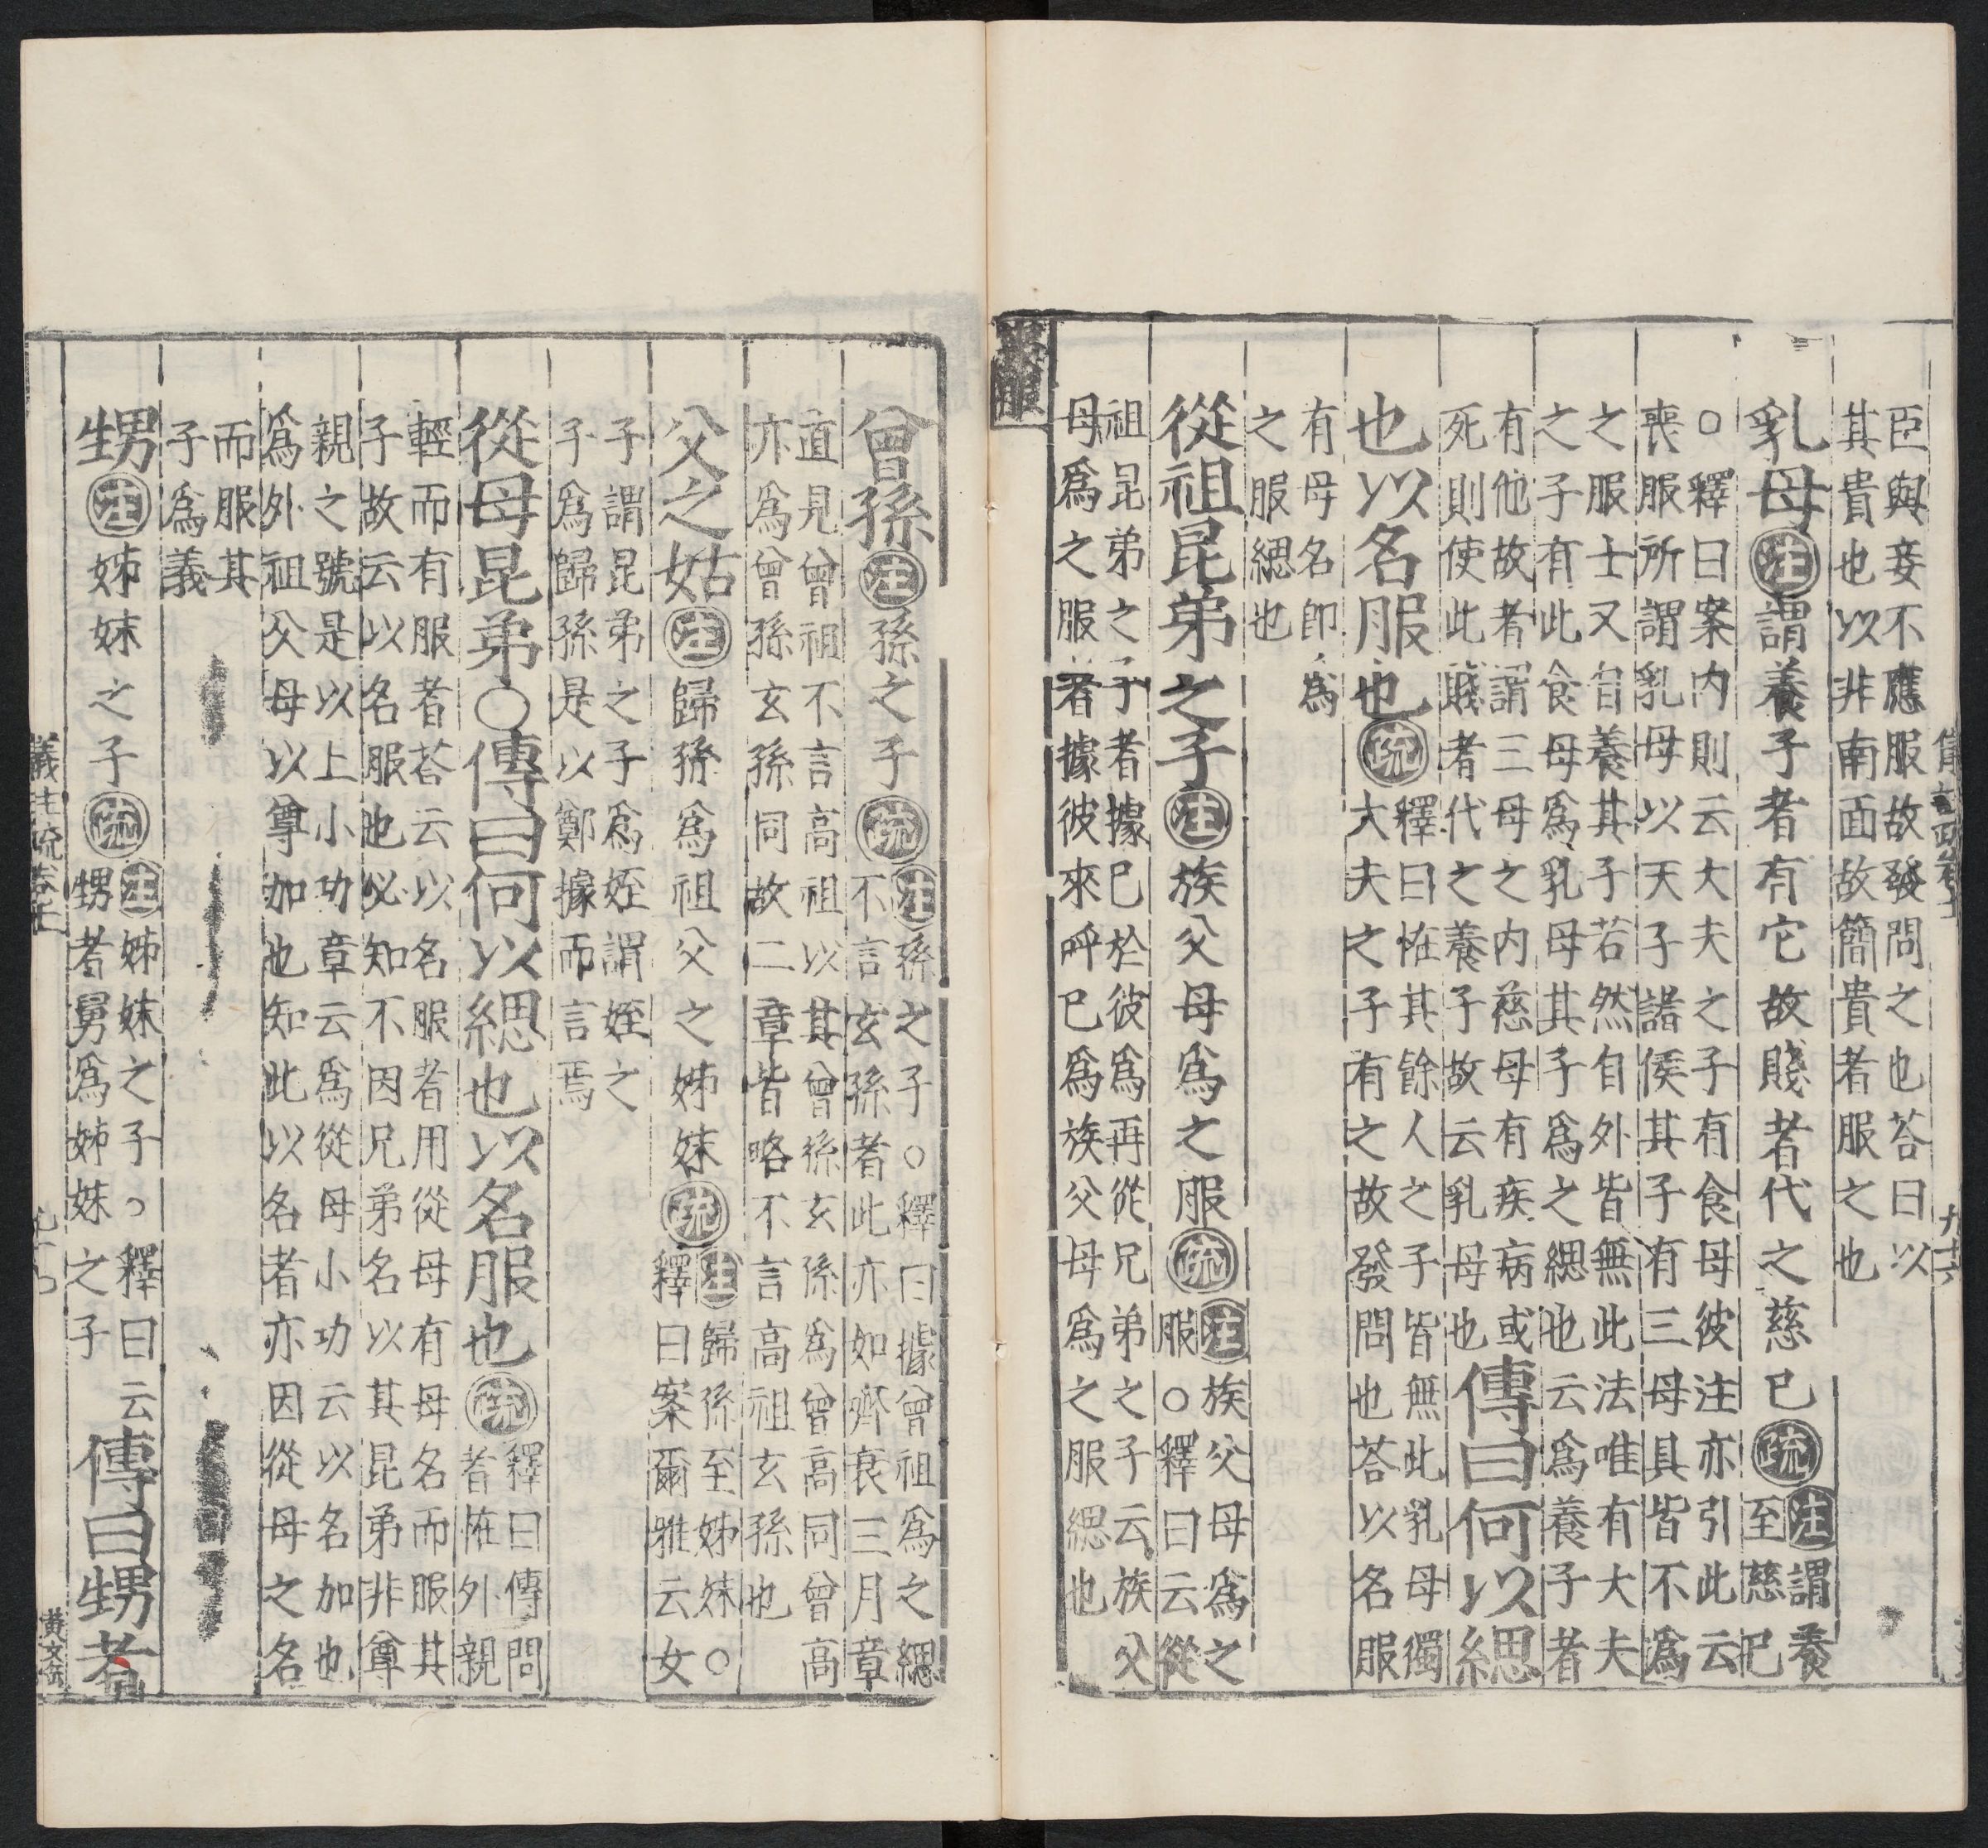 臣與妾不應服故發問之也荅曰以
其貴也以非南面故簡貴者服之也
乳母注謂養子者有它故賤者代之慈巳疏注謂養
至慈巳
○釋曰案内則云大夫之子有食母彼注亦引此云
喪服所謂乳母以天子諸侯其子有三母具皆不爲
之服士又自養其子若然自外皆無此法唯有大夫
之子有此食母爲乳母其子爲之緦也云爲養子者
有他故者謂三母之内慈母有疾病或
死則使此賤者代之養子故云乳母也
傳曰何以緦
也以名服也疏釋曰怪其餘人之子皆無此乳母獨
大夫之子有之故發問也荅以名服
有母名即爲
之服緦也
從祖昆弟之子注族父母爲之服疏注族父母爲之
服○釋曰云從
祖昆弟之子者據巳於彼爲再從兄弟之子云族父
母爲之服者據彼來呼巳爲族父母爲之服緦也
喪服
曾孫注孫之子疏注孫之子○釋曰據曾祖爲之緦
不言玄孫者此亦如齊衰三月章
直見曾祖不言高祖以其曾孫玄孫爲曾高同曾高
亦爲曾孫玄孫同故二章皆略不言高祖玄孫也
父之姑注歸孫爲祖父之姊妹疏注歸孫至姊妹○
釋曰案爾雅云女
子謂昆弟之子爲姪謂姪之
子爲歸孫是以鄭據而言焉
從母昆弟○傳曰何以緦也以名服也疏釋曰傳問
者怪外親
輕而有服者荅云以名服者用從母有母名而服其
子故云以名服也必知不因兄弟名以其昆弟非尊
親之號是以上小功章云爲從母小功云以名加也
爲外祖父母以尊加也知此以名者亦因從母之名
而服其
子爲義
甥注姊妹之子疏注姊妹之子○釋曰云
甥者舅爲姊妹之子
傳曰甥者
儀注疏卷十一
黄文